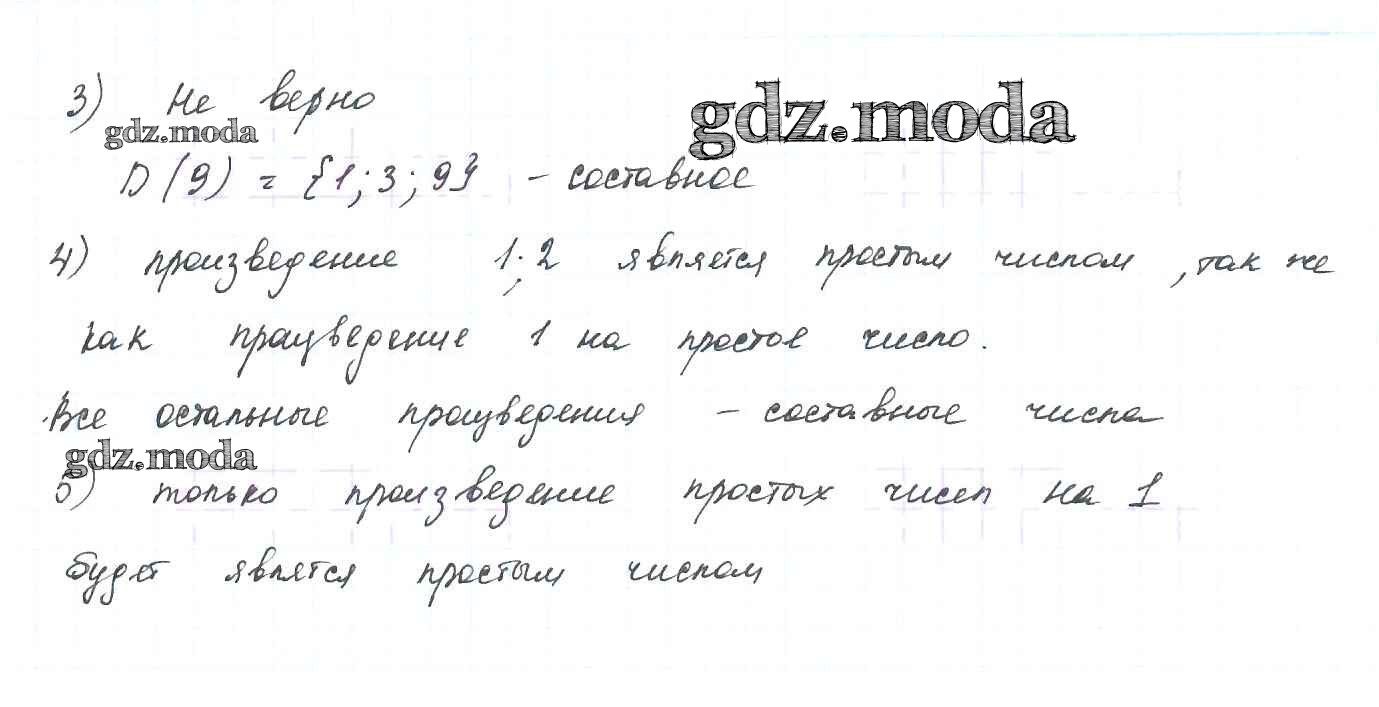 3) Не верно
gdz.moda
gdz.moda
D(9) = {1; 3; 9} – составное
4) произведение 1·2 является простым числом, так же
как произведение 1 на простое число.
Все остальные произведения – составные числа
gdz.moda
5) только произведение простых чисел на 1
будет явлется простым числом